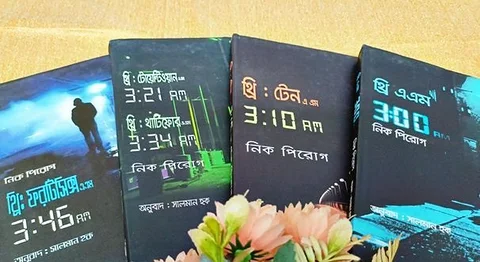 নিক পিরোগ
থ্রি: ফরটিসিক্স এ.এম
3:46 AM
অনুবাদ : সালমান হক
থ্রি : টোয়েন্টিওয়ান এ.এম
3:21 AM
থ্রি : থার্টিফোর এ.এম
3:34 AM
নিক পিরোগ
অনুবাদ : সালমান হক
থ্রি : টেন এ এম
3:10 AM
নিক পিরোগ
থ্রি এএম
3:00 AM
নিক পিরোগ
অনুবাদ : সালমান হক